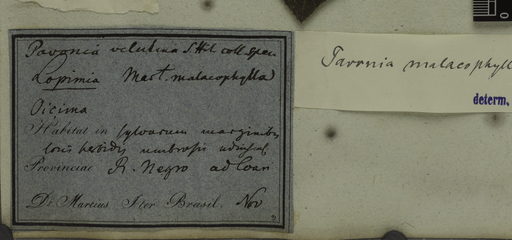 Pavonia velutina S. Hil. coll. spec.
Lopimia Mart. malacophylla
Oicima
Habitat in sylvarum marginibus
locis herbidis umbrosis
Provinciae R. Negro ad Coari
Dr. Martius Iter Brasil. Nov
Pavonia malacophyll
determ.